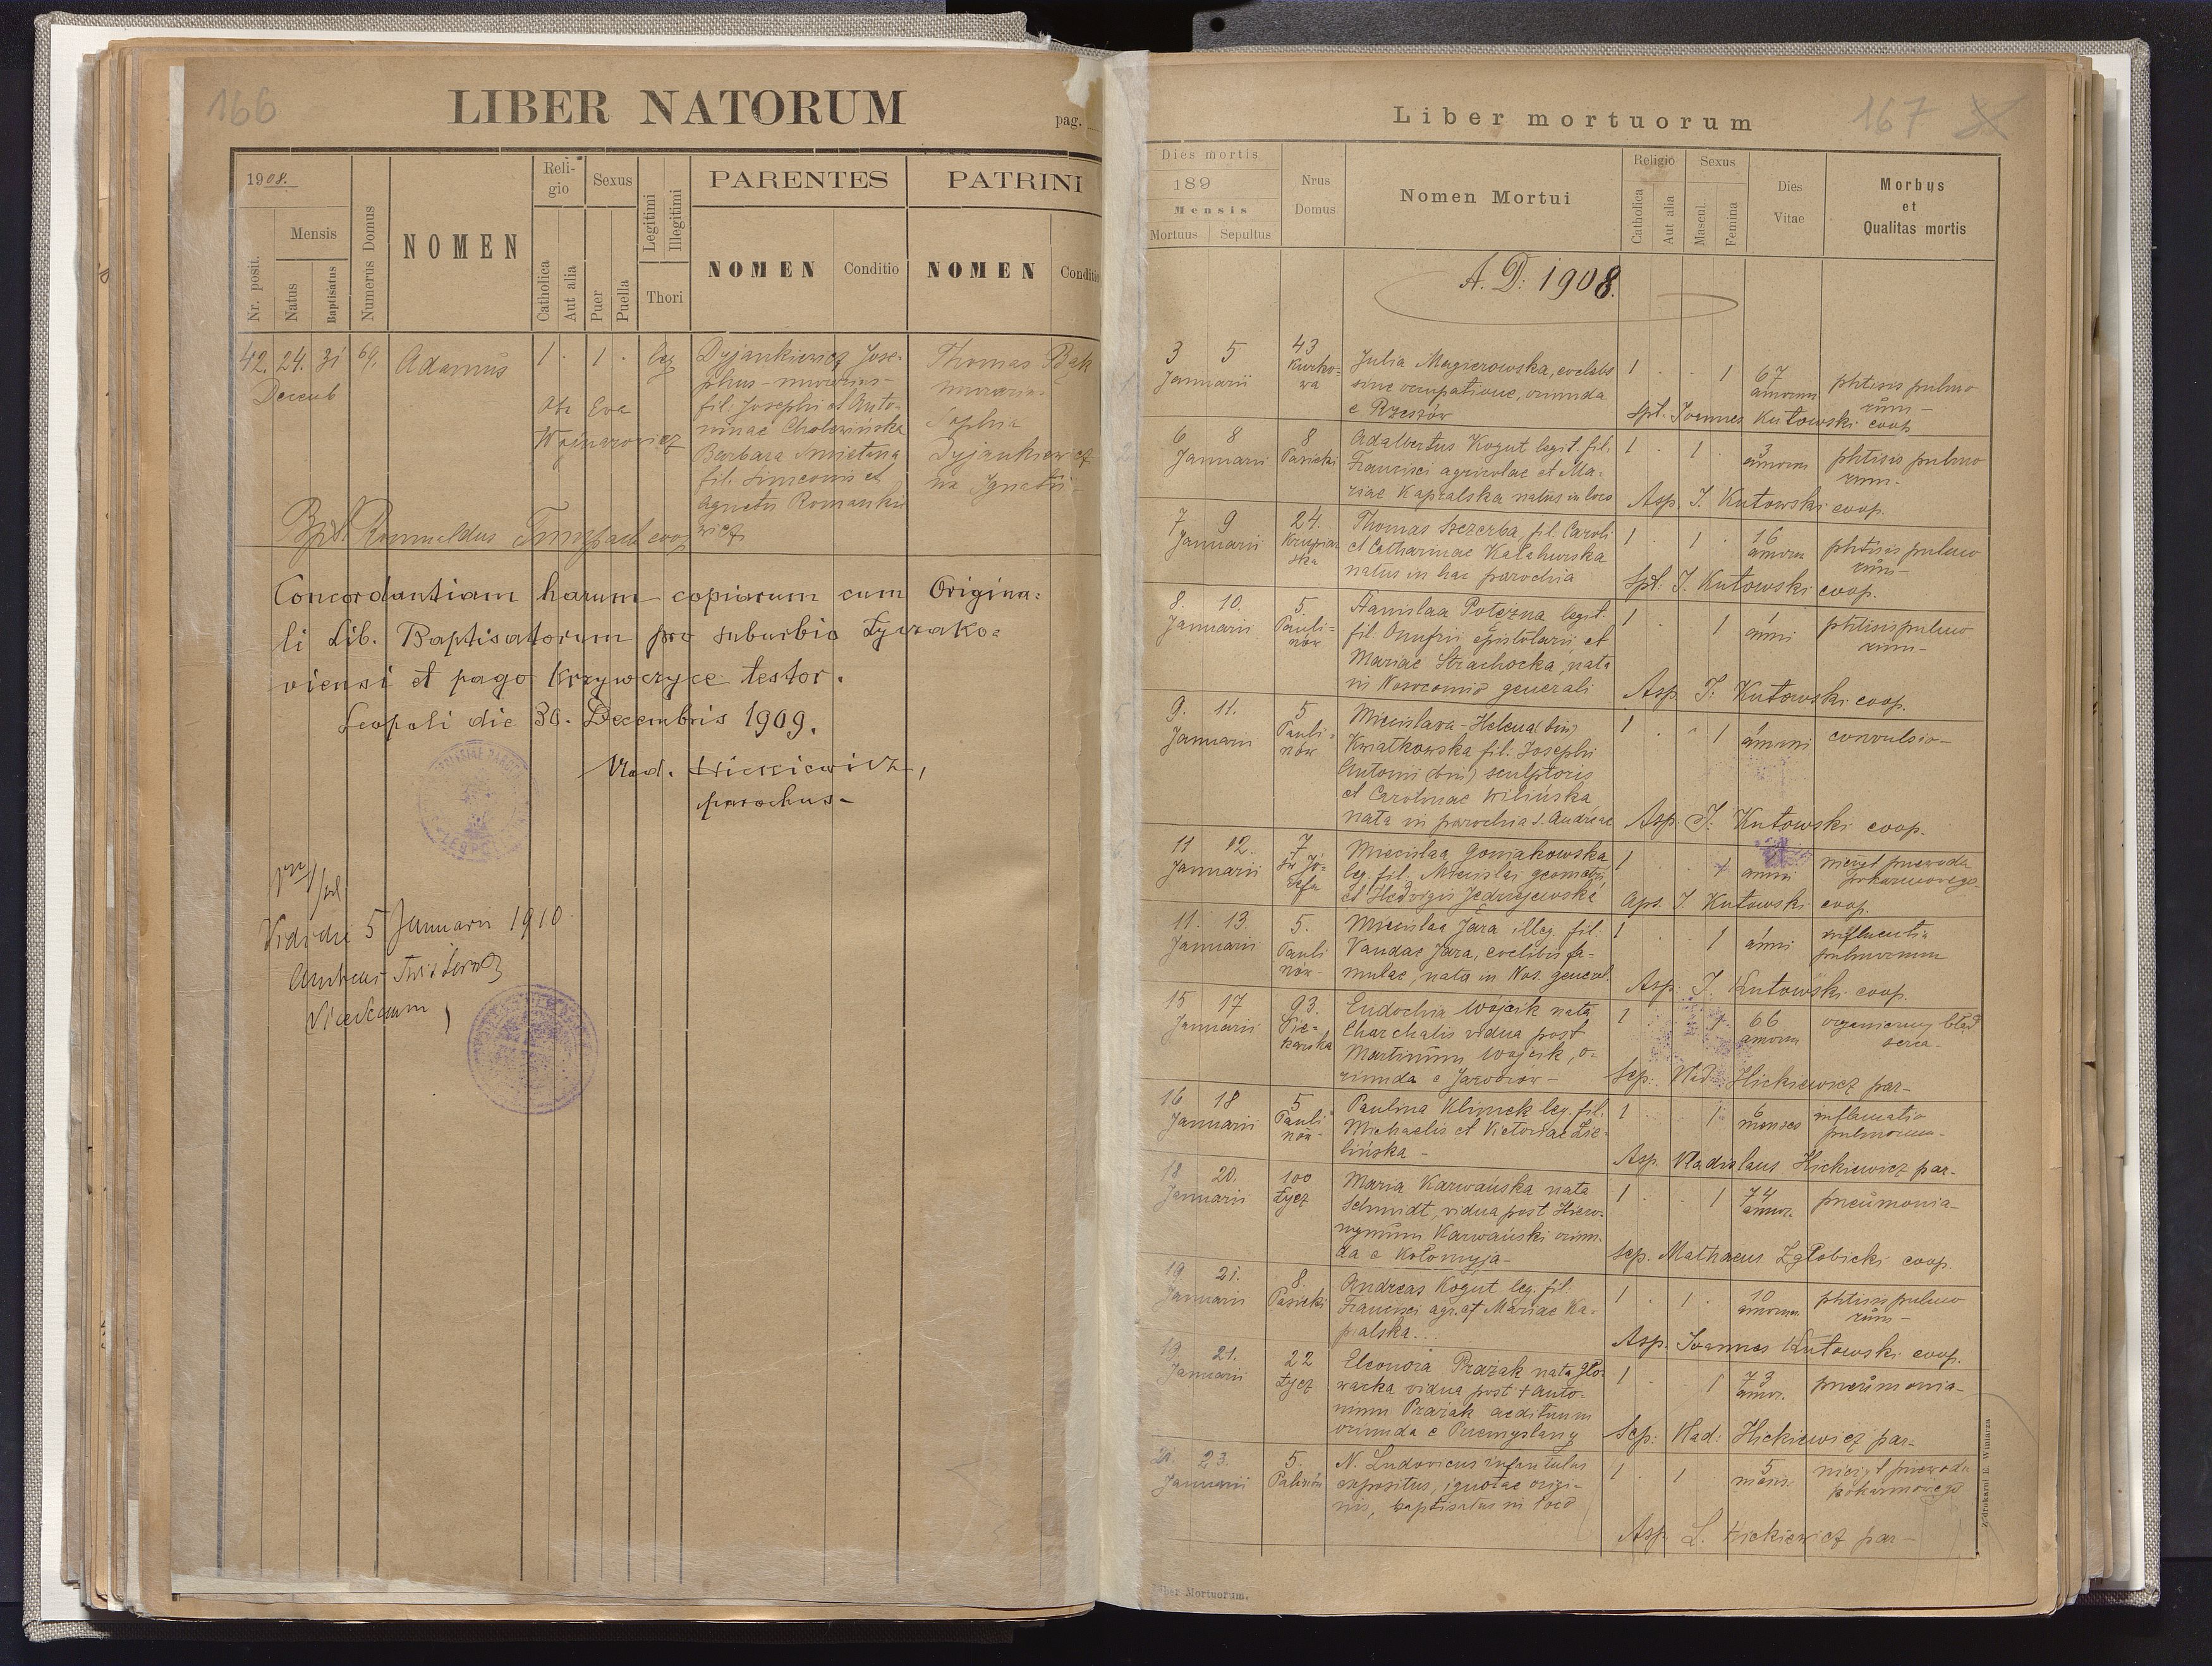 166
LIBER NATORUM
pag.
1908.
Mensis
Nr. posit.
Natus
Baptisatus
Numerus Domus
NOMEN
Religio
Catholica
Aut alia
Sexus
Puer
Puella
Legitimi
Illegitimi
Thori
PARENTES
NOMEN
Conditio
PATRINI
NOMEN
Conditio
42. 24. 31 69. Adamus 1 . 1 . leg
Decemb
Obs Eva
Wojnarowicz
Dyjankiewicz Jose-
phus - murarius -
fil. Josephi et Anto-
ninae Cholewińska
Barbara Smietana
fil. Simeonis et
Agnetis Romanki
wicz
Thomas Bąk
murarius
Sophia
Dyjankiewicz
Ignatii -
Bpt. Romualdus coop
Concordantiam harum copiarum cum Origina=
li Lib. Baptisatorum pro suburbio Łyczako=
viensi et pago Krzywczyce testor.
Leopoli die 30. Decembris 1909.
Vlad. Hickiewicz,
parochus -
Vidi die 5 Januarii 1910
167
Liber mortuorum
Dies mortis
189
Mensis
Mortuus Sepultus
Nrus
Domus
Nomen Mortui
Religio
Catholica
Aut alia
Sexus
Mascul.
Femina
Dies
Vitae
Morbus
et
Qualitas mortis
A. D: 1908.
3 5
Januarii
43
Kurko-
wa
Julia Magierowska, coelebs
sine occupatione, oriunda
e Rzeszów
1 . . 1
67
annorum
phtisis pulmo
num -
Spt. Joannes Kutowski coop
6 8
Januarii
8
Pasieki
Adalbertus Kogut legit. fil.
Francisci agricolae et Ma-
riae Kapralska natus in loco
1 . 1 .
3
annorum
phtisis pulmo
num -
Asp. J. Kutowski coop.
7 9
Januarii
24.
Krupiar
ska
Thomas Szczerba, fil. Caroli
et Catharinae Kalahurska
natus in hac parochia
1 . 1 .
16
annorum
phtisis pulmo
num -
Spt: J. Kutowski coop.
8. 10.
Januarii
5.
Pauli=
nów
Stanislaa Potezna legit.
fil. Onufrii epistolarii et
Mariae Strachocka, nata
in Nosocomio generali
1 . 1
anni
phtisis pulmo
num -
Asp. J: Kutowski coop.
9. 11.
Januarii
5
Pauli=
nów
Mieceislava-Helena (bin)
Kwiatkowska fil. Josephi
Antonii (bin) sculptoris
et Carolinae Wilińska,
nata in parochia S. Andreae
1 . . 1
convulsio -
Asp. J: Kutowski coop.
11 12.
Januarii
7
św. Jó-
zefa
Miecislaa Goniakowska
leg. fil. Miecislai geometri
et Hedvigis Jędrzejewska
1 . 1
anni
nieżyt przewodu
pokarmowego
Aps. J. Kutowski coop.
11. 13.
Januarii
5.
Pauli
nów -
Miecislaa Jara illeg. fil.
Vandae Jara, coelibis fa-
mulae, nata in Nos. general.
1 . 1
anni
inflamatio
pulmonum
Asp. J. Kutowski coop.
15 17
Januarii
93.
Pie-
karska
Eudochia Wojcik nata
Charchalis vidua post
Martinum Wojcik, o-
riunda e Jaworów -
1 . 1
66
annorum
organiczny błąd
serca -
Sep: Vlad: Hickiewicz par -
16 18
Januarii
5
Pauli
nów -
Paulina Klimek leg. fil.
Michaelis et Victoriae Zie-
lińska -
1 . 1
6
menses
inflamatio
pulmonum -
Asp. Vladislaus Hickiewicz par -
18 20.
Januarii
100
Łycz
Maria Karwańska nata
Schmidt, vidua post Hiero-
nymum Karwański oriun-
da e Kołomyja -
1 . 1
74
annor.
pneumonia -
Sep. Mathaeus Zgłobicki coop.
19 21.
Januarii
8.
Pasieki
Andreas Kogut leg. fil.
Francisci agr. et Mariae Ka-
pralska..
1 . 1 .
10
annorum
phtisis pulmo
num -
Asp. Joannes Kutowski coop.
19. 21.
Januarii
22
Łycz
Eleonora Prażak nata Gło-
wacka vidua post + Anto-
nium Prażak aedituum
oriunda e Przemyślany
1 . 1
73
annor.
pneumonia -
Sep: Vlad: Hickiewicz par -
21. 23.
Januarii
5.
Paulinów
N. Ludovicus infantulus
expositus, ignotae origi-
nis, baptisatus in loco
1 . 1
5
mens.
nieżyt przewodu
pokarmowego
Asp. L. Hickiewicz par -
Z drukarni E. Winiarza
Liber Mortuorum.